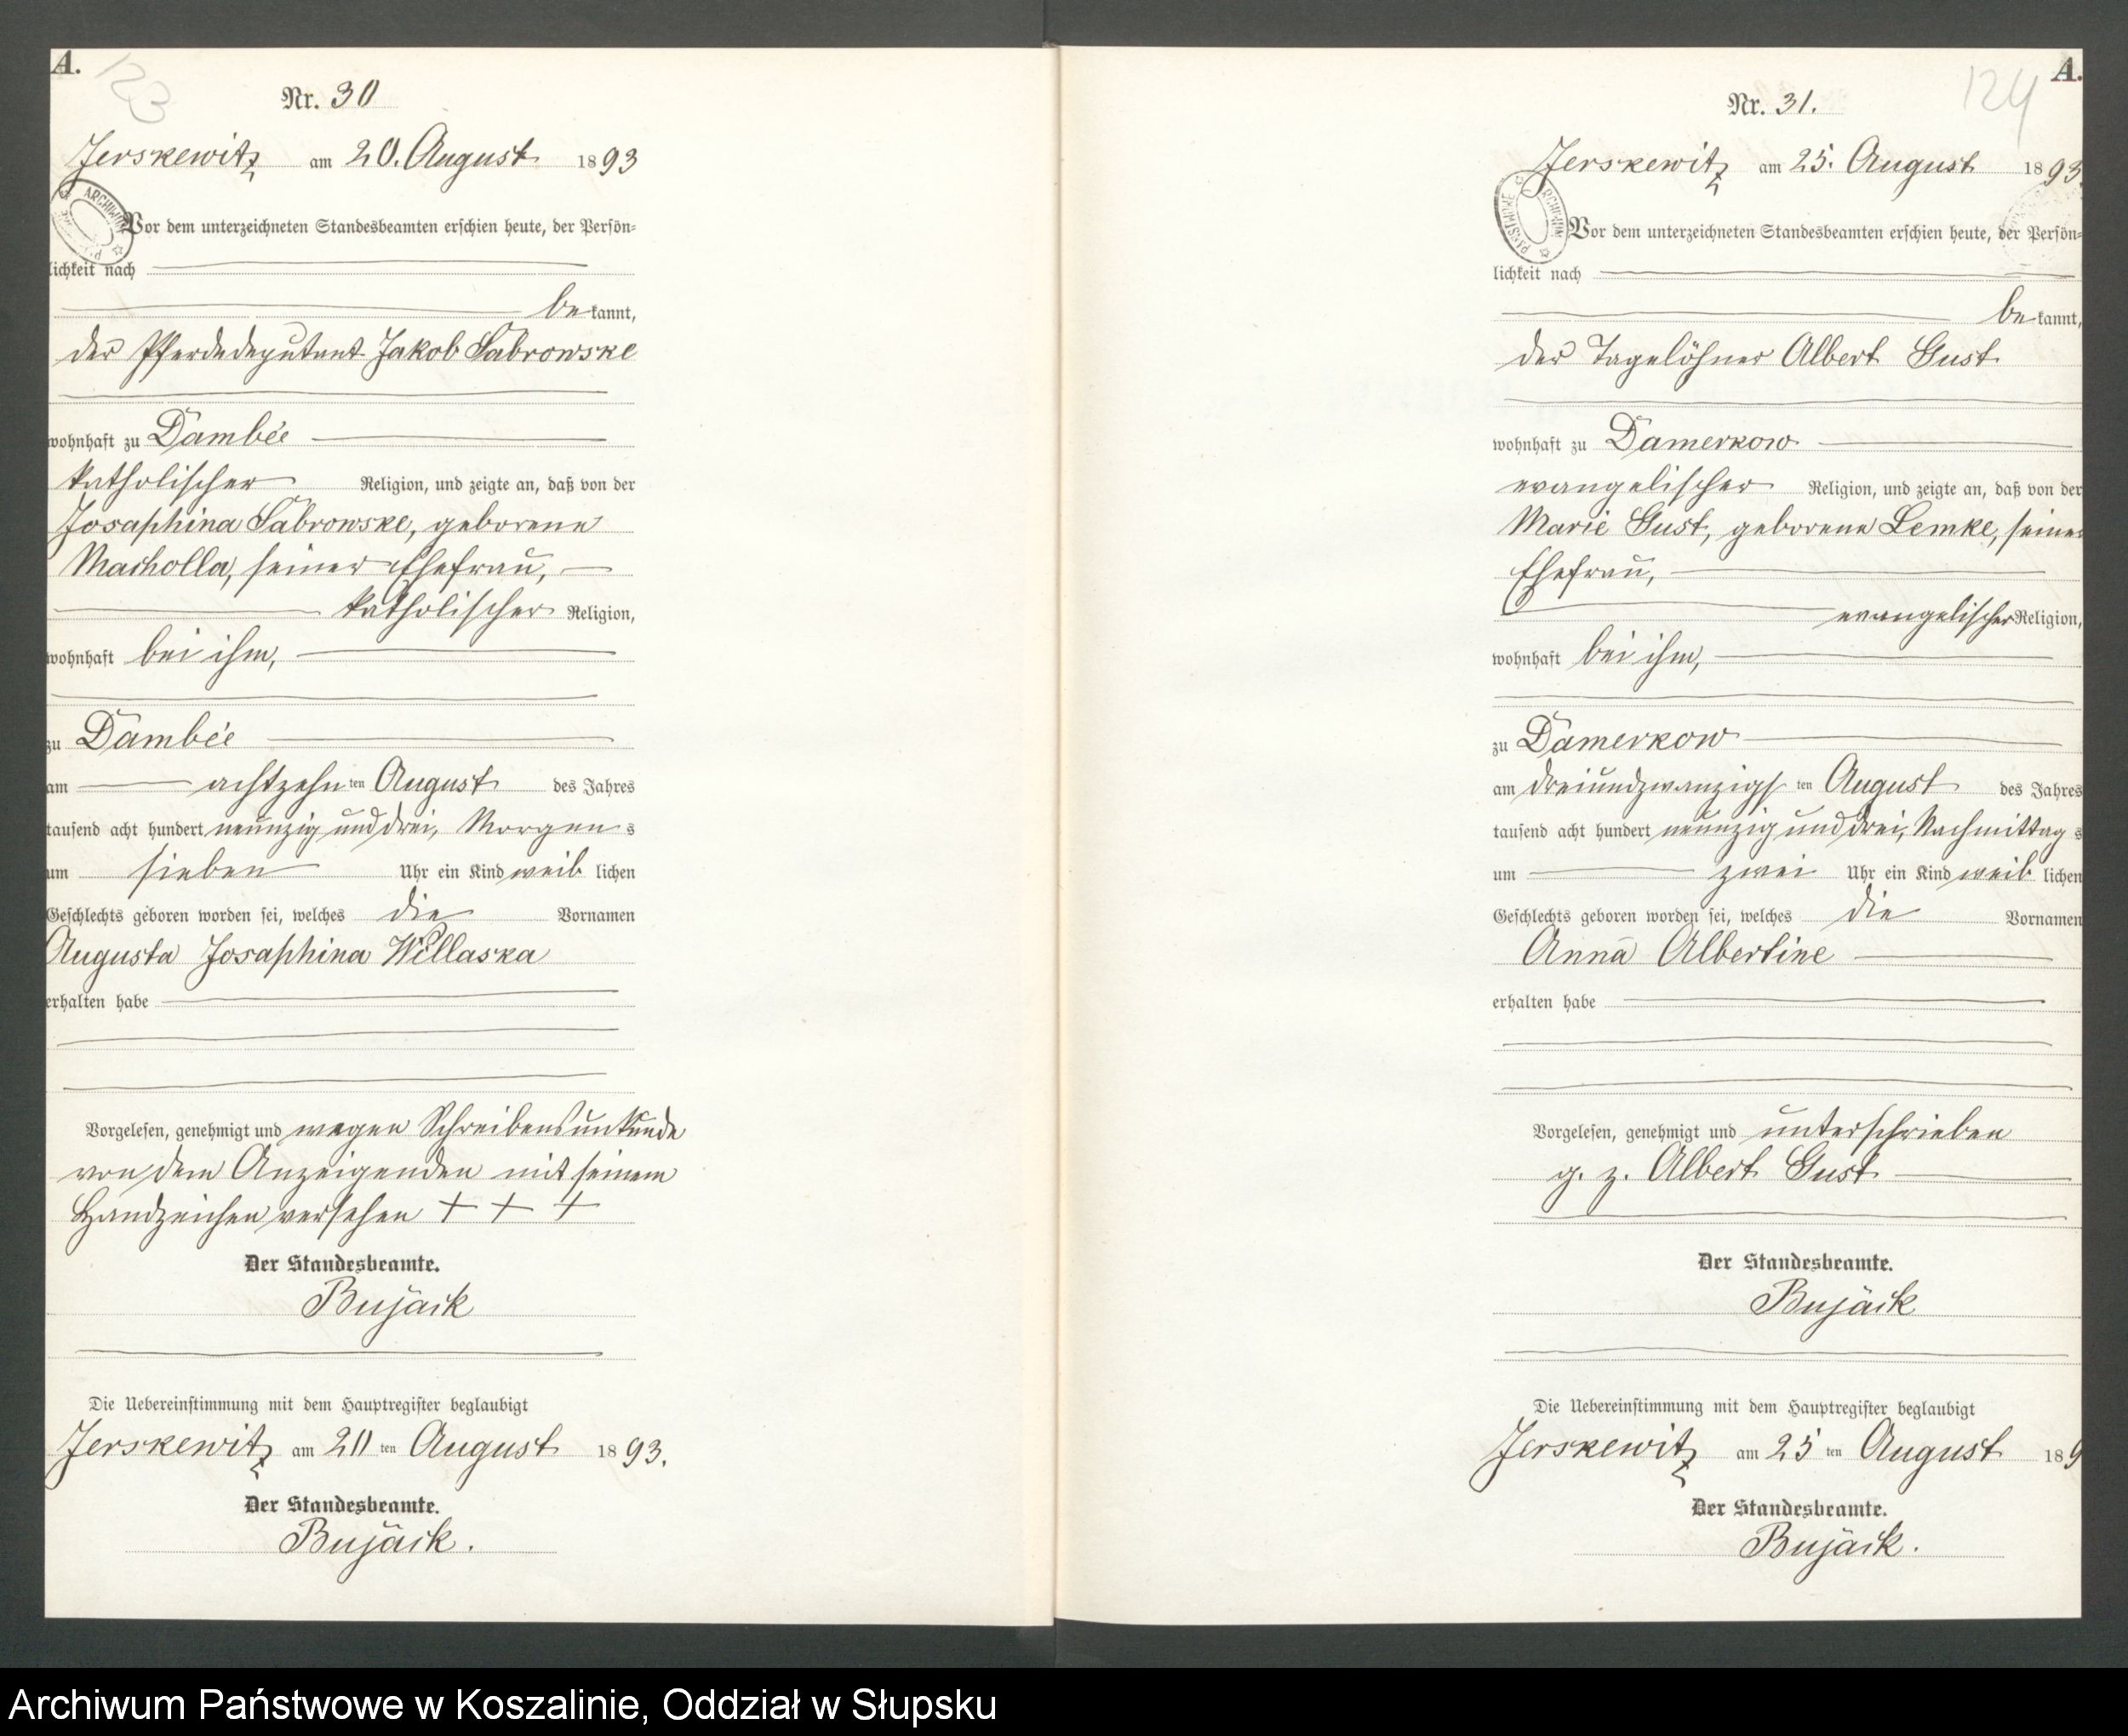 A.
123
Nr. 30
Jerskewitz am 20. August 1893
Vor dem unterzeichneten Standesbeamten erschien heute, der Persön-
lichkeit nach
bekannt,
der Pferdedeputant Jakob Labrowske
wohnhaft zu Dambée
katholischer Religion, und zeigte an, daß von der
Josaphina Labrowske, geborene
Macholla, seiner Ehefrau,
katholischer Religion,
wohnhaft bei ihm,
zu Dambée
am achtzehn ten August des Jahres
tausend acht hundert neunzig und drei, Morgens
um sieben Uhr ein Kind weiblichen
Geschlechts geboren worden sei, welches die Vornamen
Augusta Josaphina Willaska
erhalten habe
Vorgelesen, genehmigt und wegen Schreibensunkunde
von dem Anzeigenden mit seinem
Handzeichen versehen + + +
Der Standesbeamte.
Bujäck
Die Uebereinstimmung mit dem Hauptregister beglaubigt
Jerskewitz am 20 ten August 1893.
Der Standesbeamte.
Bujäck.
A.
124
Nr. 31.
Jerskewitz am 25. August 1893
ARCHIWUM PAŃSTWOWE
Vor dem unterzeichneten Standesbeamten erschien heute, der Persön-
lichkeit nach
bekannt,
der Tagelöhner Albert Gust
wohnhaft zu Damerkow
evangelischer Religion, und zeigte an, daß von der
Marie Gust, geborene Lemke, seiner
Ehefrau,
evangelischer Religion,
wohnhaft bei ihm,
zu Damerkow
am dreiundzwanzigsten August des Jahres
tausend acht hundert neunzig und drei, Nachmittags
um zwei Uhr ein Kind weiblichen
Geschlechts geboren worden sei, welches die Vornamen
Anna Albertine
erhalten habe
Vorgelesen, genehmigt und unterschrieben
g. z. Albert Gust
Der Standesbeamte.
Bujäck
Die Uebereinstimmung mit dem Hauptregister beglaubigt
Jerskewitz am 25 ten August 189
Der Standesbeamte.
Bujäck.
Archiwum Państwowe w Koszalinie, Oddział w Słupsku